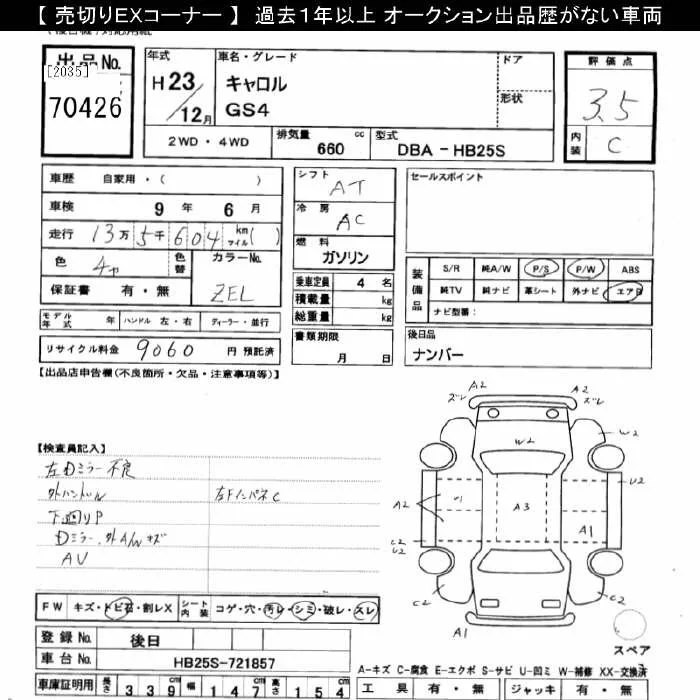 【 売切りEXコーナー 】 過去1年以上 オークション出品歴がない車両
出品No.
[2035]
70426
年式
H 23/12月
車名・グレード
キャロル
GS4
ドア
形状
2WD・4WD
排気量 660 cc
型式 DBA - HB25S
評価点
3.5
内装 C
車歴 自家用・( )
車検 9年 6月
走行 13万5千604 km マイル( )
色
色替
カラーNo.
ZEL
保証書 有・無
シフト AT
冷房 AC
燃料 ガソリン
乗車定員 4 名
積載量 kg
総重量 kg
セールスポイント
装備品
S/R 純A/W P/S P/W ABS
純TV 純ナビ 革シート 外ナビ エアB
ナビ型番:
モデル年式 年 ハンドル 左・右 ディーラー・並行
リサイクル料金 9060 円 預託済
書類期限
月 日
後日品
ナンバー
【出品店申告欄(不良箇所・欠品・注意事項等)】
【検査員記入】
左Dミラー不良
外ハンドル
左FインパネC
下廻りP
Dミラー、外A/Wキズ
AV
A2
ズレ
A2
ズレ
W2
W2
U2
A2
A3
A1
C2
U2
C2
C2
C2
A1
スペア
FW キズ・トビ石・割レX
シート内装 コゲ・穴・汚レ・シミ・破レ・スレ
登録No. 後日
車台No. HB25S-721857
A-キズ C-腐食 E-エクボ S-サビ U-凹ミ W-補修 XX-交換済
車庫証明用 長さ 339 cm 幅 147 cm 高さ 154 cm
工具 有・無 ジャッキ 有・無